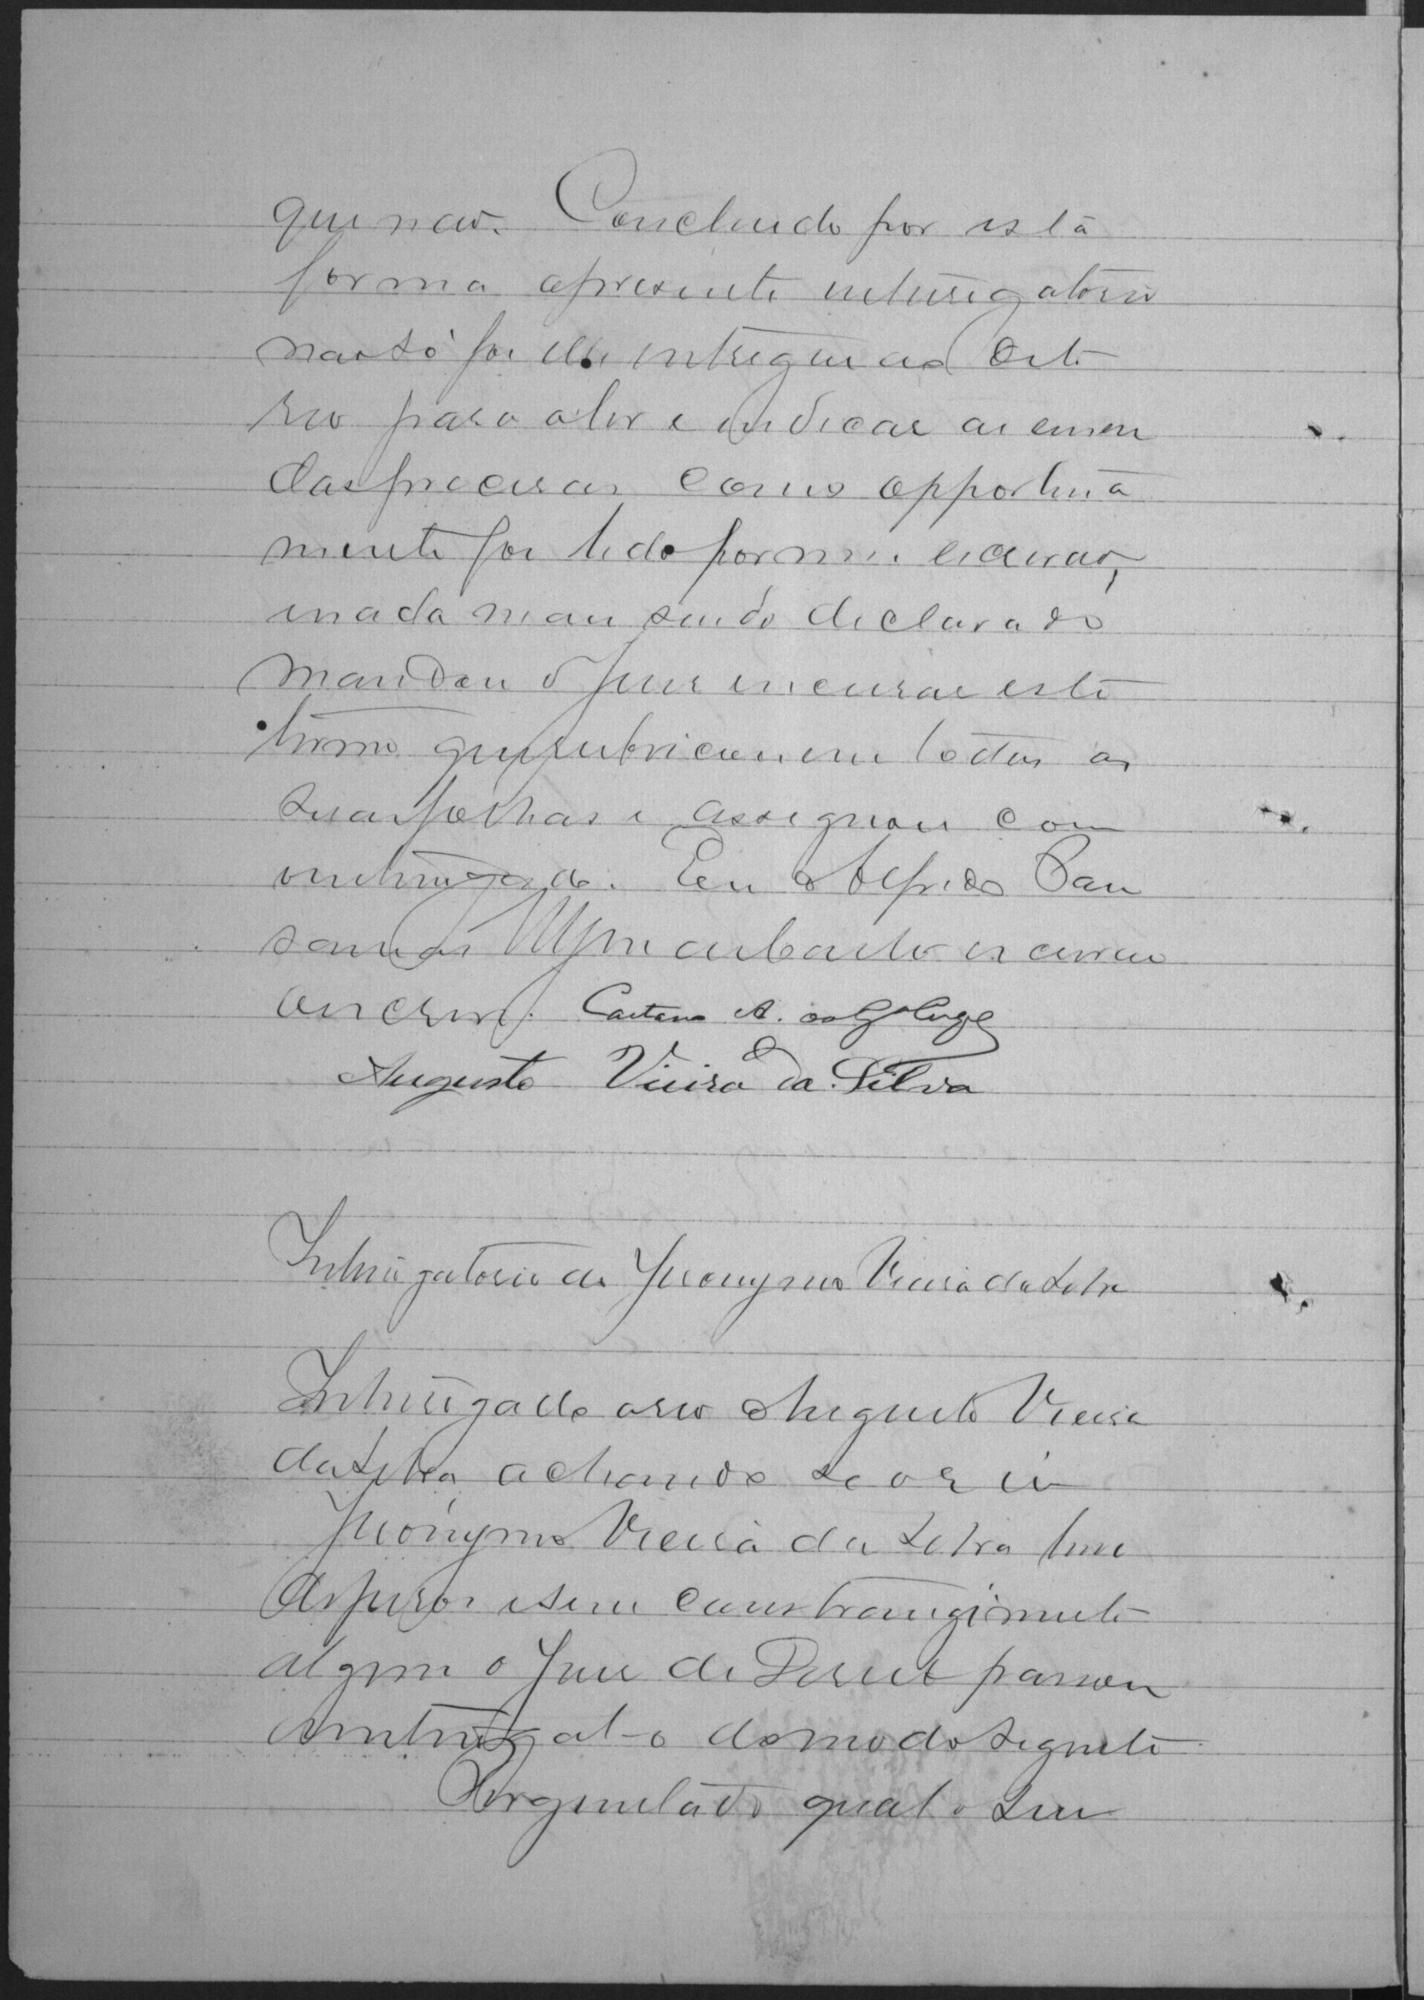 que não. Concluido por esta
forma o presente interrogatorio
não só foi elle entregue ao dito
reo para o ler e indicar as emen
das precisas como opportuna
mente foi lido por mim escrivão,
e nada mais sendo declarado
mandou o Juiz encerrar este
termo que rubricou em todas as
suas folhas e assignou com
o interrogado. Eu Alfredo
escrivão
o escrevi. Caetano A. da
Augusto Vieira da Silva
Interrogatorio de Jeronymo Vieira da Silva
Interrogado o reo Augusto Vieira
da Silva achando se o reo
Jeronymo Vieira da Silva livre
de ferros e sem constrangimento
algum o Juiz de Direito passou
a interrogal-o do modo seguinte
Perguntado qual o seu